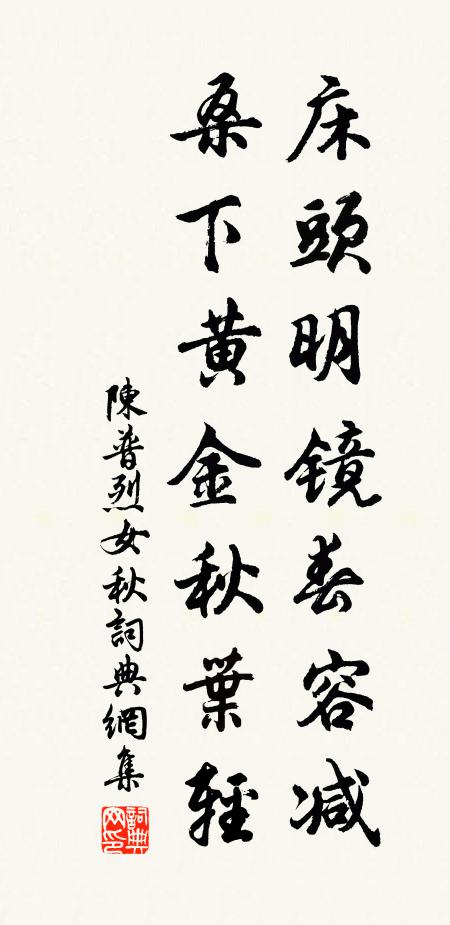 床頭明镜春容减
桑下黄金秋葉輕
陳普烈女秋詞典網集
詞典網印